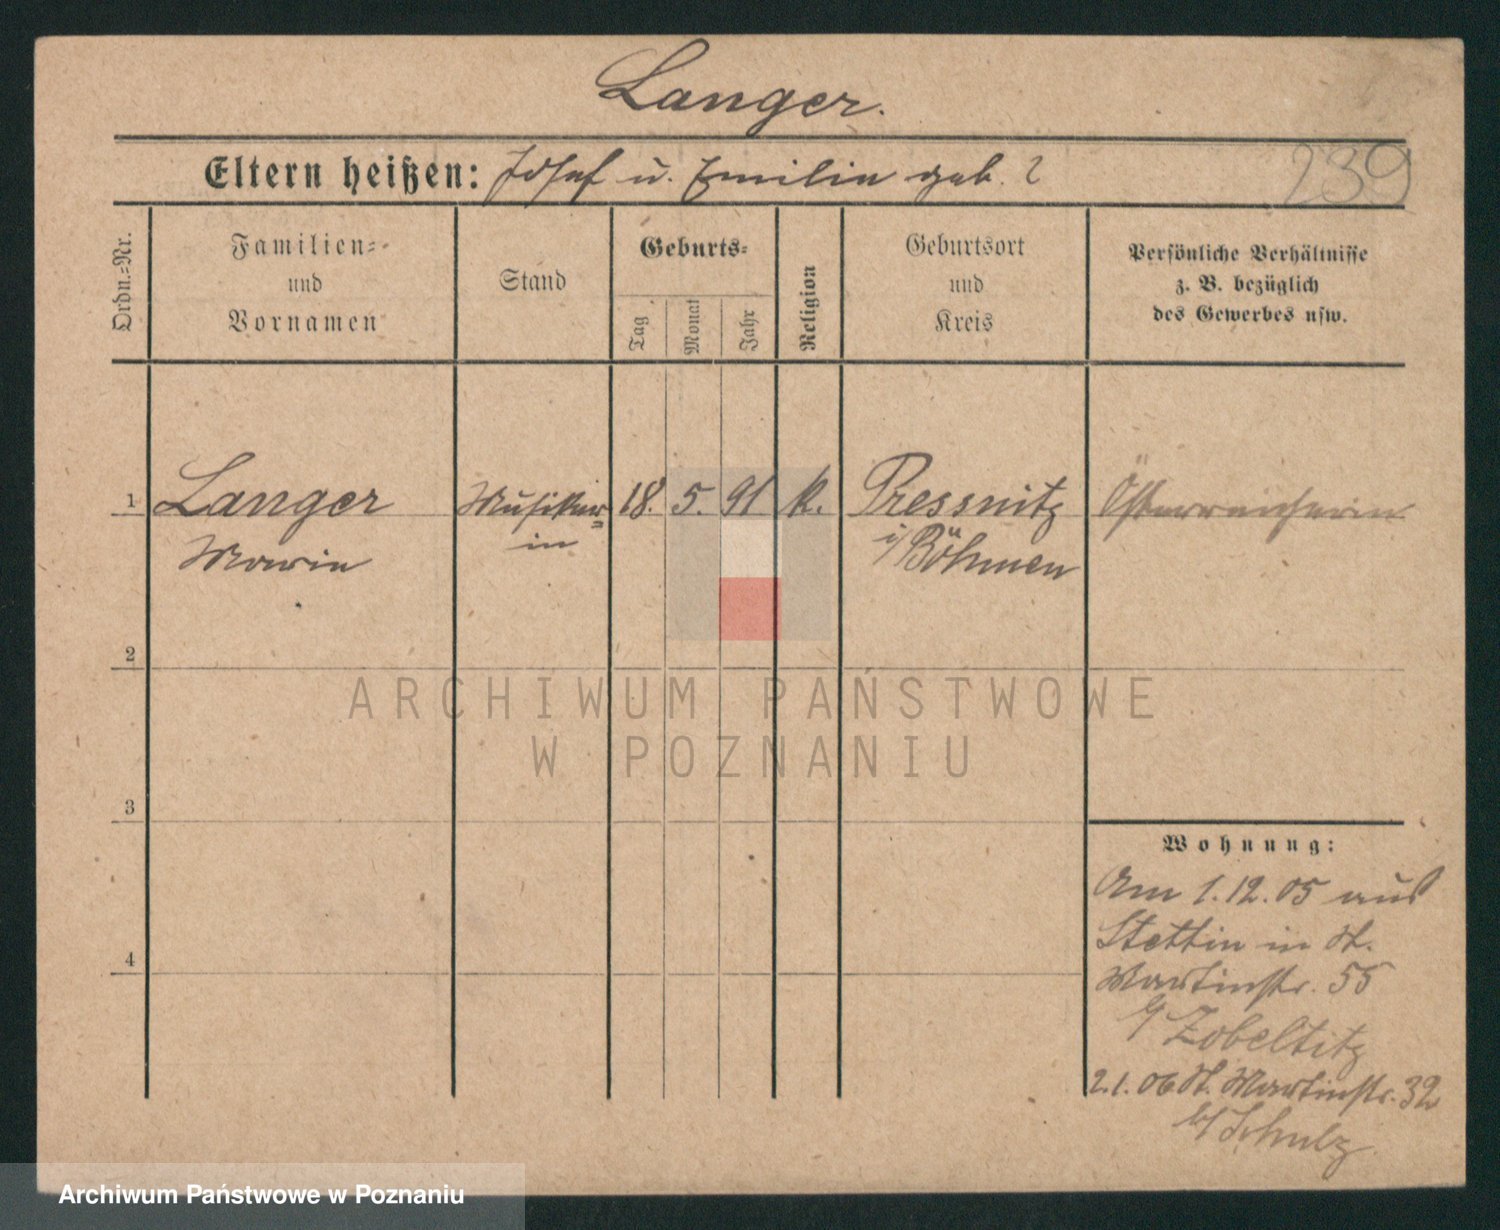 Langer.
239
Eltern heißen: Josef u. Emilie geb. ?
Ordn.=Nr.
Familien=
und
Vornamen
Stand
Geburts=
Tag
Monat
Jahr
Religion
Geburtsort
und
Kreis
Persönliche Verhältnisse
z. B. bezüglich
des Gewerbes usw.
1 Langer Musiker= 18. 5. 91 k. Pressnitz Österreicherin
Marie in i/ Böhmen
2
ARCHIWUM PAŃSTWOWE
W POZNANIU
3
Wohnung:
Am 1.12.05 aus
Stettin in St.
4
Martinstr. 55
b/ Zobeltitz
2.1.06 St. Martinstr. 32
b/ Schulz
Archiwum Państwowe w Poznaniu